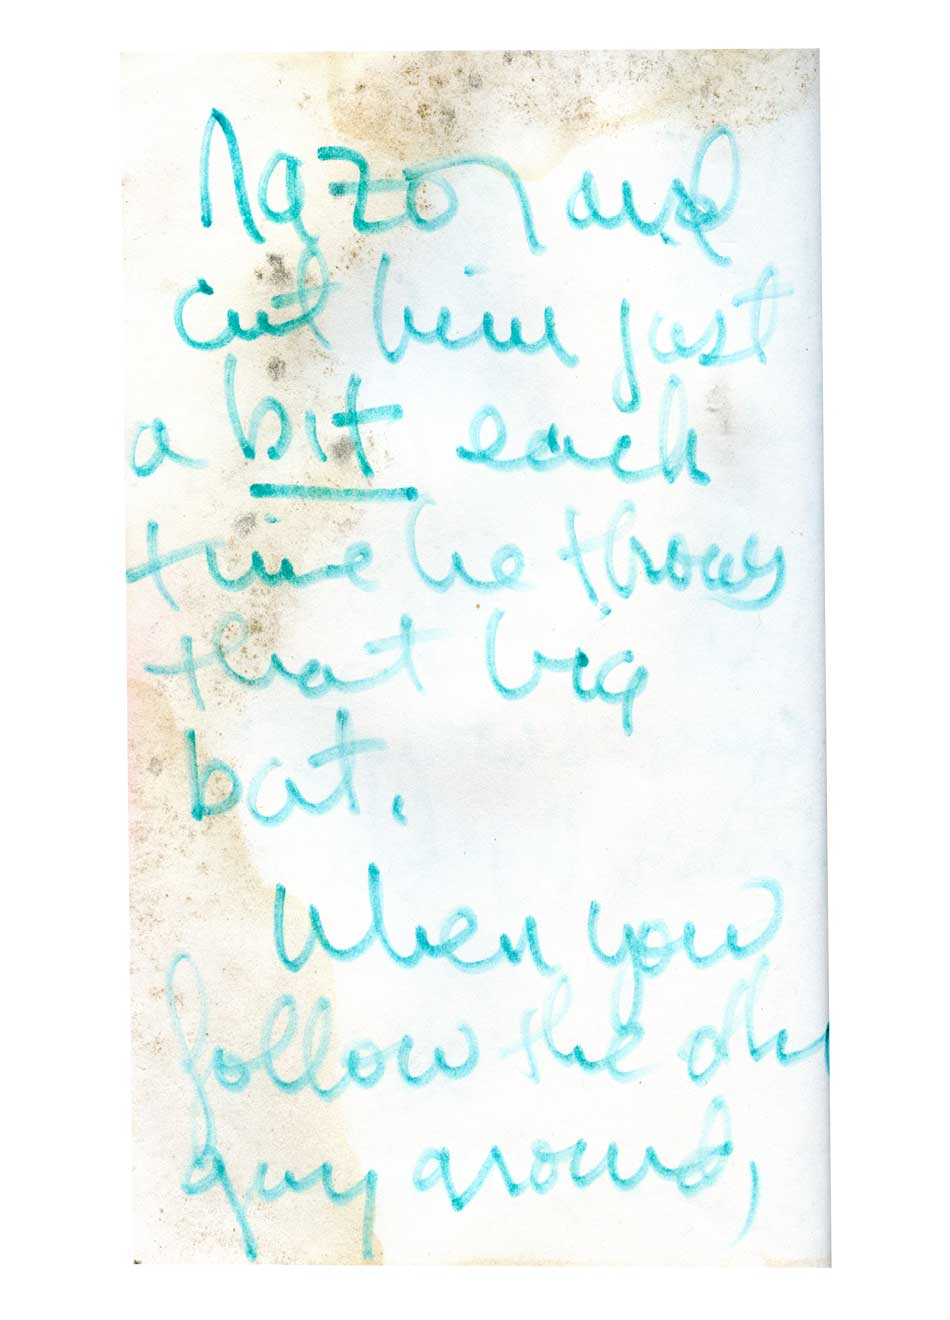 razor and
cut him just
a bit each
time he throws
that big
bat.
When you
follow the other
guy around,